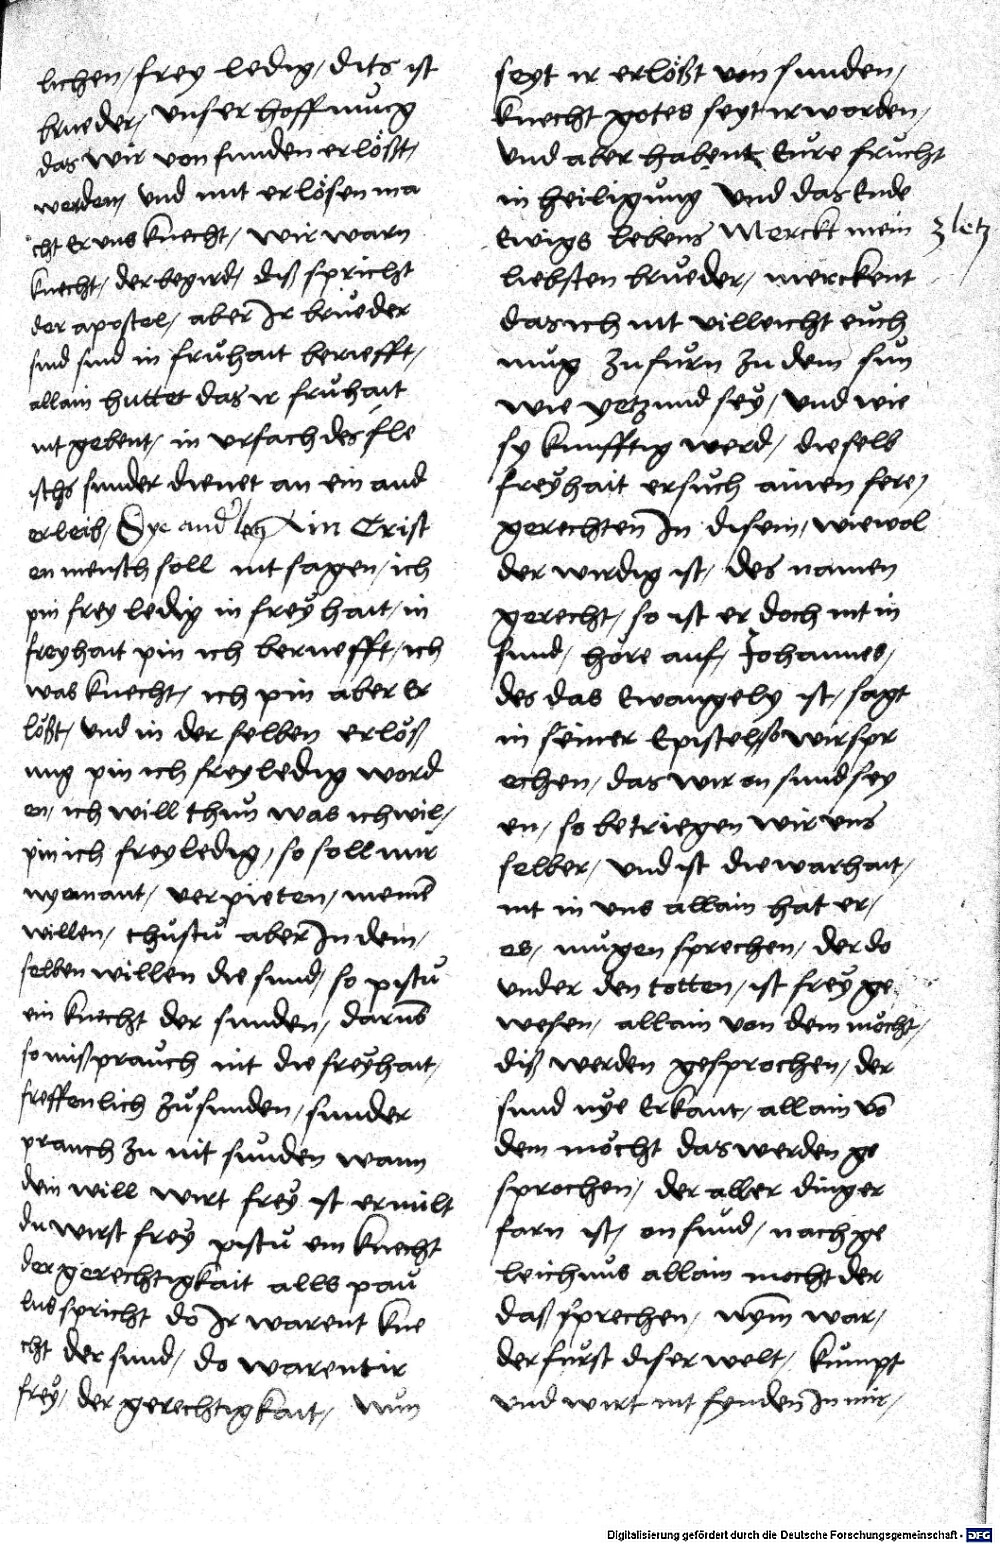 lichen / frey ledig / dits ist
brueder / vnser hoffnung
das wir von sunden erlößt /
werden / vnd mit erlösen ma
cht Er vns knecht / wir warn
knecht / der begird / diß spricht
der apostel / aber Ir brueder
sind sind in fryhait berüefft /
allain huttet das ir fryhait
nit gebent / in vrsach des fle
ischs sunder dienet an ein and
erleib / Sye and letz ain Crist
en mensch soll nit sagen / ich
pin frey ledig in freyhait / in
freyhait pin ich beruefft / ich
was knecht / ich pin aber Er
lößt / vnd in der selben erlöß
ung pin ich frey ledig word
en / ich will thun was ich wil /
pin ich frey ledig / so soll mir
nyemant / verpieten / meinen
willen / thustu aber In dem /
selben willen die sund / so pistu
ein knecht der sunden / darumb
so mißprauch nit die freyhait /
freffenlich zu sunden / sunder
prauch zu nit sunden wann
dein will wirt frey ist er milt
du wirst frey pistu ein knecht
der gerechtigkait alls pau
lus spricht do Ir warent kne
cht der sund / do warent ir
frey / der gerechtigkait / Nun
seyt ir erlößt von sunden /
knecht gotes seyt ir worden /
vnd aber habent Eure frucht
in heiligung vnd das Ende
Ewigs lebens Merckt mein
z letz
liebsten brueder / merckent
das ich nit villeicht euch
mug zu furn zu dem sun
wie yetzund sey / vnd wie
sy kunfftig werd / dieselb
freyhait ersuch ainen fere /
gerechten In disem / wiewol
der wirdig ist / des namen
gerecht / so ist er doch nit in
sund / höre auf / Johannes /
des das Ewangely ist / sagt
in seiner Epistel / so wir spr
echen / das wir on sund sey
en / so betriegen wir vns
selber / vnd ist die warhait /
nit in vns allain hat er /
es / mugen sprechen / der do
vnder den totten / ist frey ge
wesen / allain von dem möcht /
diß werden gesprochen / der
sund nye Erkant / allain vo
dem möcht das werden ge
sprochen / der aller dinger
farn ist / on sund / nach ge
leichnus allain mocht der
daß sprechen / nym war /
der furst diser welt / kumpt
vnd wirt nit fynden In mir /
Digitalisierung gefördert durch die Deutsche Forschungsgemeinschaft - DFG